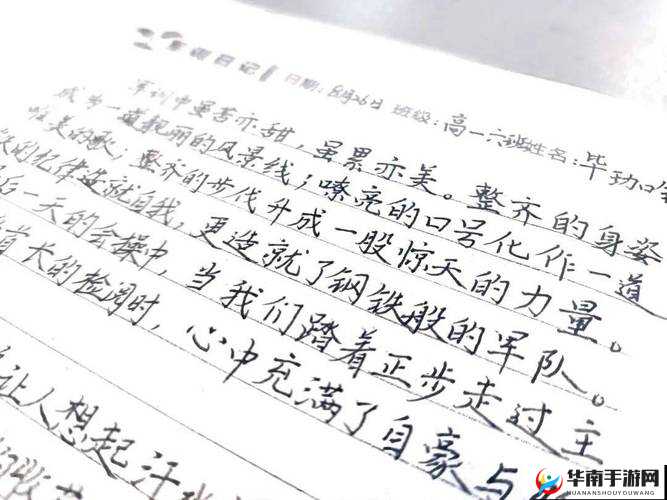 军训日记 日期:8月26日 班级:高一六班 姓名:毕
军训中虽苦亦甜,虽累亦美。整齐的身姿
成为一道靓丽的风景线;嘹亮的口号化作一道
唯美的歌;整齐的步伐升成一股惊天的力量。
铁的纪律造就自我,更造就了钢铁般的军队。
后一天的会操中,当我们踏着正步走过主
首长的检阅时,心中充满了自豪与
让人想起汗
华南手游网
HUANANSHOUYOUWANG